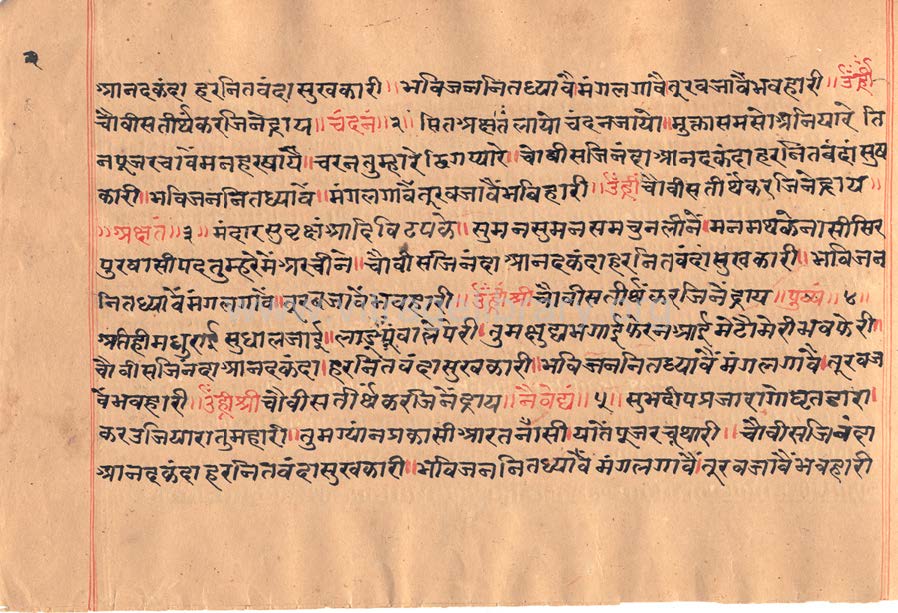 २
आनदकंदा हरनितवंदा सुखकारी ॥ भविजननितध्यावै मंगलगावै तूरवजावै भवहारी ॥ उँह्रीँ
चौवीसतीर्थंकरजिनेंद्राय ॥ चंदनं ॥ २ ॥ सितअक्षतंलायो चंदनजायो ॥ मुक्तासमसोअनियारे ति
नपूजरचावै मनहरखायै ॥ चरनतुम्हारे ढिगप्यारे ॥ चोवीसजिनंदा आनदकंदा हरनितवंदां सुख
कारी ॥ भविजननितध्यावै ॥ मंगलगावै तूरवजावै भविहारी ॥ उँह्रीं चोवीसतीर्थंकरजिनेंद्राय ॥
॥ अक्षतं ॥ ३ ॥ मंदारसुवृक्षं आदिविटपके ॥ सुमनसुमनसमचुनलीने ॥ मनमथकेनासीसिर
पुरवासीपदतुम्हरेमें अरचीने ॥ चौवीसजिनंदा आनदकंदा हरनितवंदा सुखकारी ॥ भविजन
नितध्यावै मंगलगावै ॥ तूरवजावै भवहारी ॥ उँह्रीँश्री चौवीसतीर्थंकरजिनेंद्राय ॥ पुष्पं ॥ ४ ॥
अतिहीमधुराई सुधालजाई ॥ लाडू पूंवा लेपरी ॥ तुमक्षुद्यभगाई फेरनआई मेटौमेरीभवफेरी
चौवीसजिनंदा आनदकंदा ॥ हरनितवंदासुखकारी ॥ भविजननितध्यावै मंगलगावै ॥ तूरवज
वैभवहारी ॥ उँह्रीश्री चौवीसतीर्थंकरजिनेंद्राय ॥ नैवेद्यं ॥ ५ ॥ सुभदीपप्रजारागोघृतडारा
करउजियारातुमहारी ॥ तुमग्यांनप्रकासीआरतनासी यातेपूजरचूथारी ॥ चौवीसजिनंदा
आनदकंदा हरनितवंदासुखकारी ॥ भविजननितध्यावै मंगलगावै ॥ तूरवजावै भवहारी